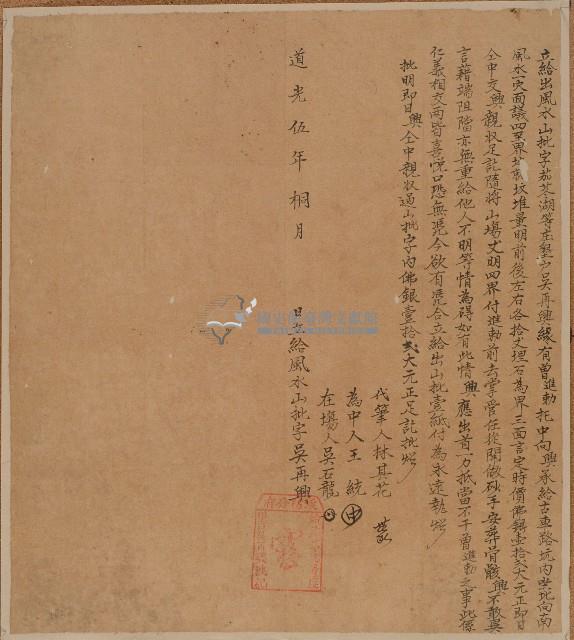 立給出風水山批字茄苳湖等庄墾戶吳再興緣有曾進勳托中向興承給古車路坑內坐北向南
風水一穴面議四至界址墳堆量明前後左右各拾丈埋石為界三面言定時價佛銀壹拾弍大元正即日
仝中交興親收足訖隨將山場丈明四界付進勳前去掌管任從開做砂手安葬骨骸興不敢異
言藉端阻擋亦無重給他人不明等情為碍如有此情興應出首一力抵當不干曾進勳之事此係
仁義相交兩皆喜悅口恐無憑今欲有憑合立給出山批壹紙付為永遠執炤
批明即日興仝中親收過山批字內佛銀壹拾弍大元正足訖批炤
代筆人林其花
為中人王統
在場人吳石龍
道光伍年桐月 日立給風水山批字吳再興
國史館臺灣文獻館